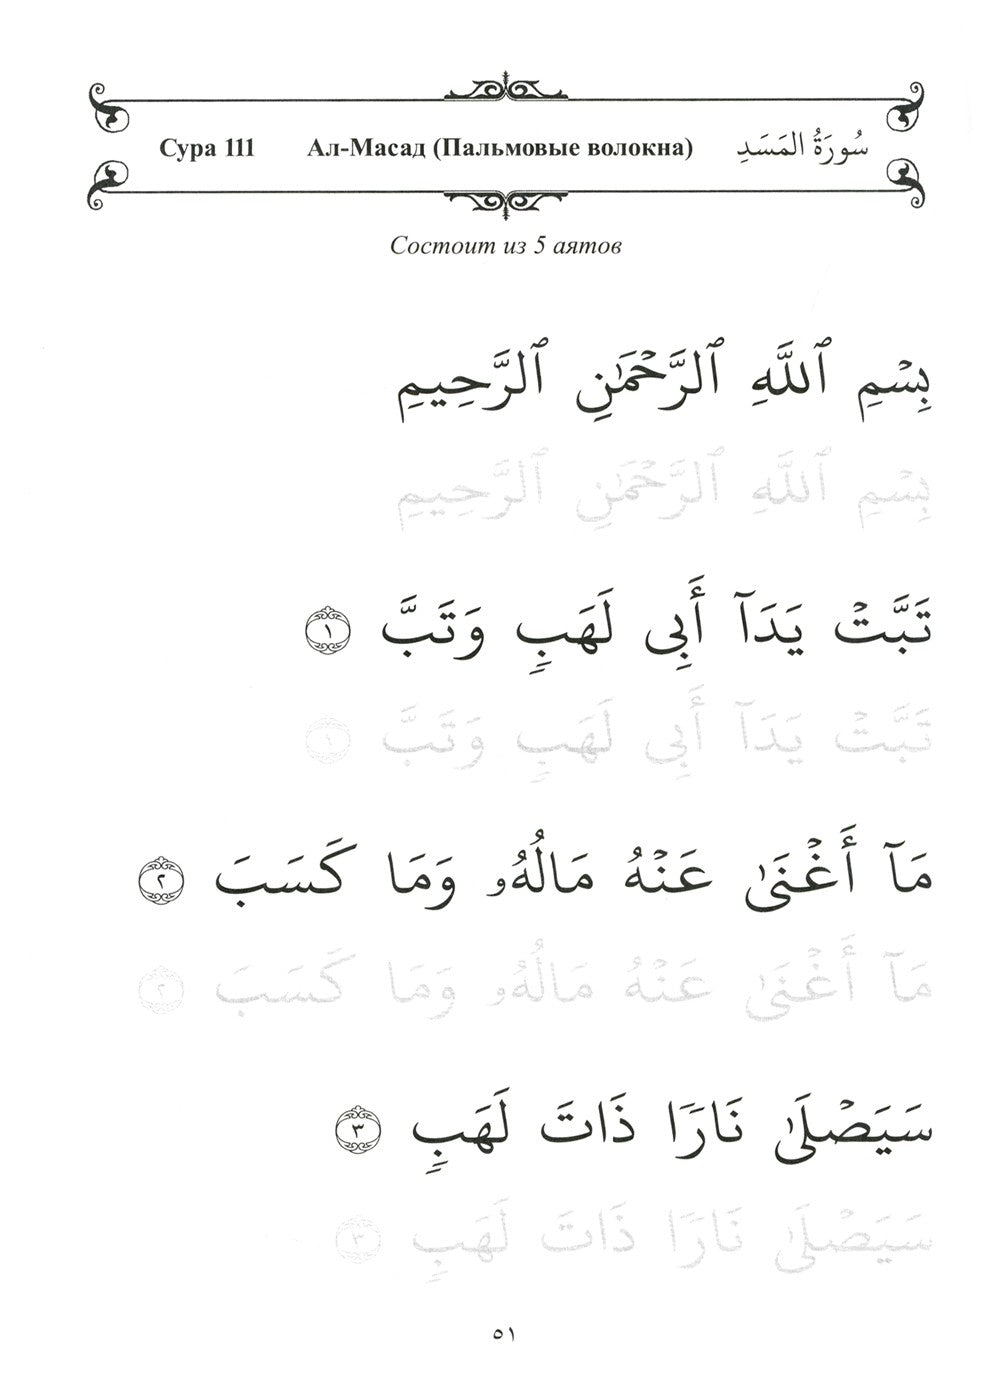 Сура 111 Ал-Масад (Пальмовые волокна) سُورَةُ المَسَدِ
Состоит из 5 аятов
بِسْمِ ٱللَّهِ ٱلرَّحْمَٰنِ ٱلرَّحِيمِ
بِسْمِ ٱللَّهِ ٱلرَّحْمَٰنِ ٱلرَّحِيمِ
تَبَّتْ يَدَآ أَبِى لَهَبٍ وَتَبَّ ١
تَبَّتْ يَدَآ أَبِى لَهَبٍ وَتَبَّ ١
مَآ أَغْنَىٰ عَنْهُ مَالُهُۥ وَمَا كَسَبَ ٢
مَآ أَغْنَىٰ عَنْهُ مَالُهُۥ وَمَا كَسَبَ ٢
سَيَصْلَىٰ نَارًا ذَاتَ لَهَبٍ ٣
سَيَصْلَىٰ نَارًا ذَاتَ لَهَبٍ ٣
٥١